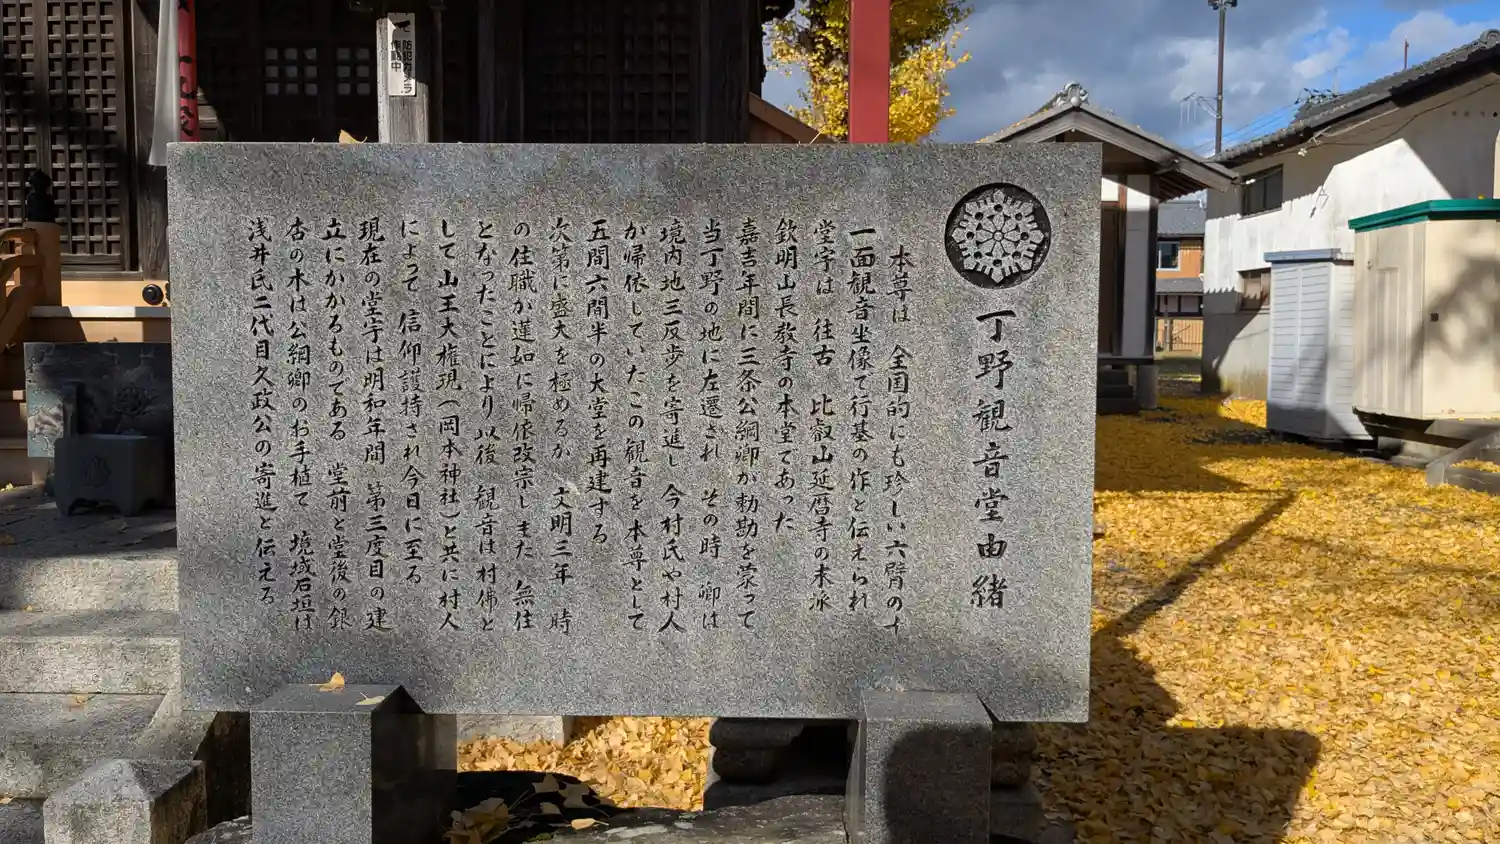 丁野観音堂由緒
本尊は 全国的にも珍しい六臂の十
一面観音坐像で行基の作と伝えられ
堂宇は 往古 比叡山延暦寺の末派
欽明山長教寺の本堂であった
嘉吉年間に三条公綱卿が勅勘を蒙って
当丁野の地に左遷され その時 卿は
境内地三反歩を寄進し 今村氏や村人
が帰依していたこの観音を本尊として
五間六間半の大堂を再建する
次第に盛大を極めるが 文明三年 時
の住職が蓮如に帰依改宗しまた 無住
となったことにより以後 観音は村佛と
して山王大権現(岡本神社)と共に村人
によって 信仰護持され今日に至る
現在の堂宇は明和年間 第三度目の建
立にかかるものである 堂前と堂後の銀
杏の木は公綱卿のお手植で 境域石垣は
浅井氏二代目久政公の寄進と伝える
防犯カメラ
作動中